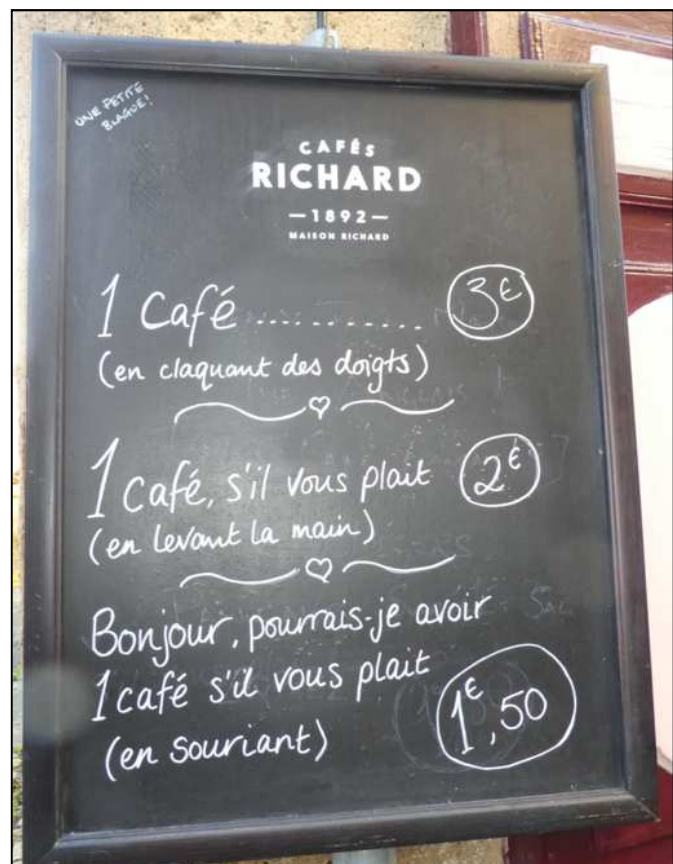 UNE PETITE
BLAGUE!
CAFÉS
RICHARD
— 1892 —
MAISON RICHARD
1 Café ............ 3€
(en claquant des doigts)
1 Café, s'il vous plait 2€
(en levant la main)
Bonjour, pourrais-je avoir
1 café s'il vous plait
(en souriant) 1€,50